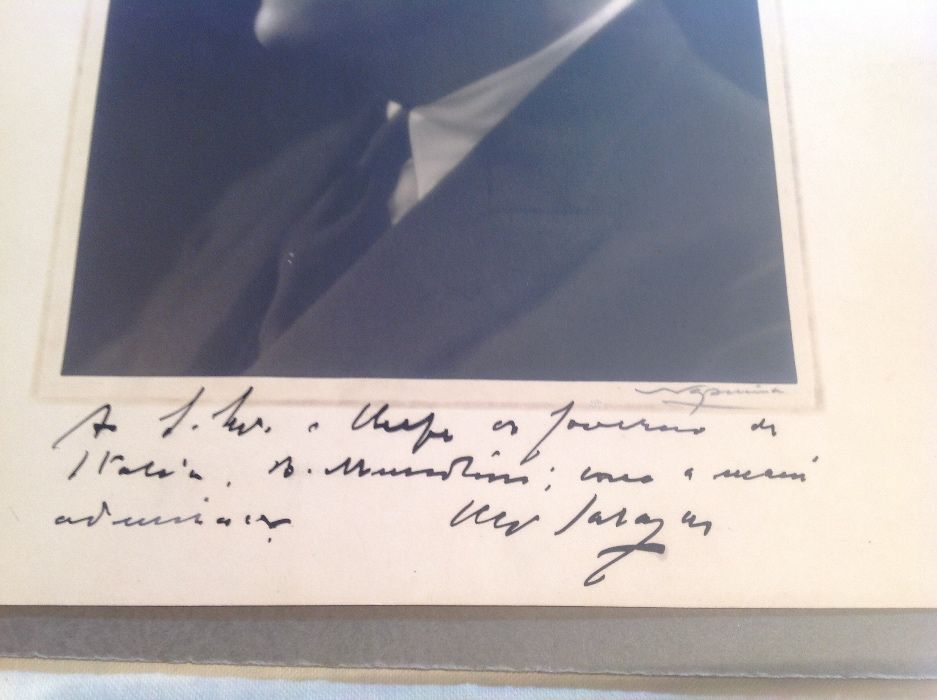 A S. Exª. o Chefe do Governo da
Italia, B. Mussolini; com a maior
admiração
Olivª Salazar